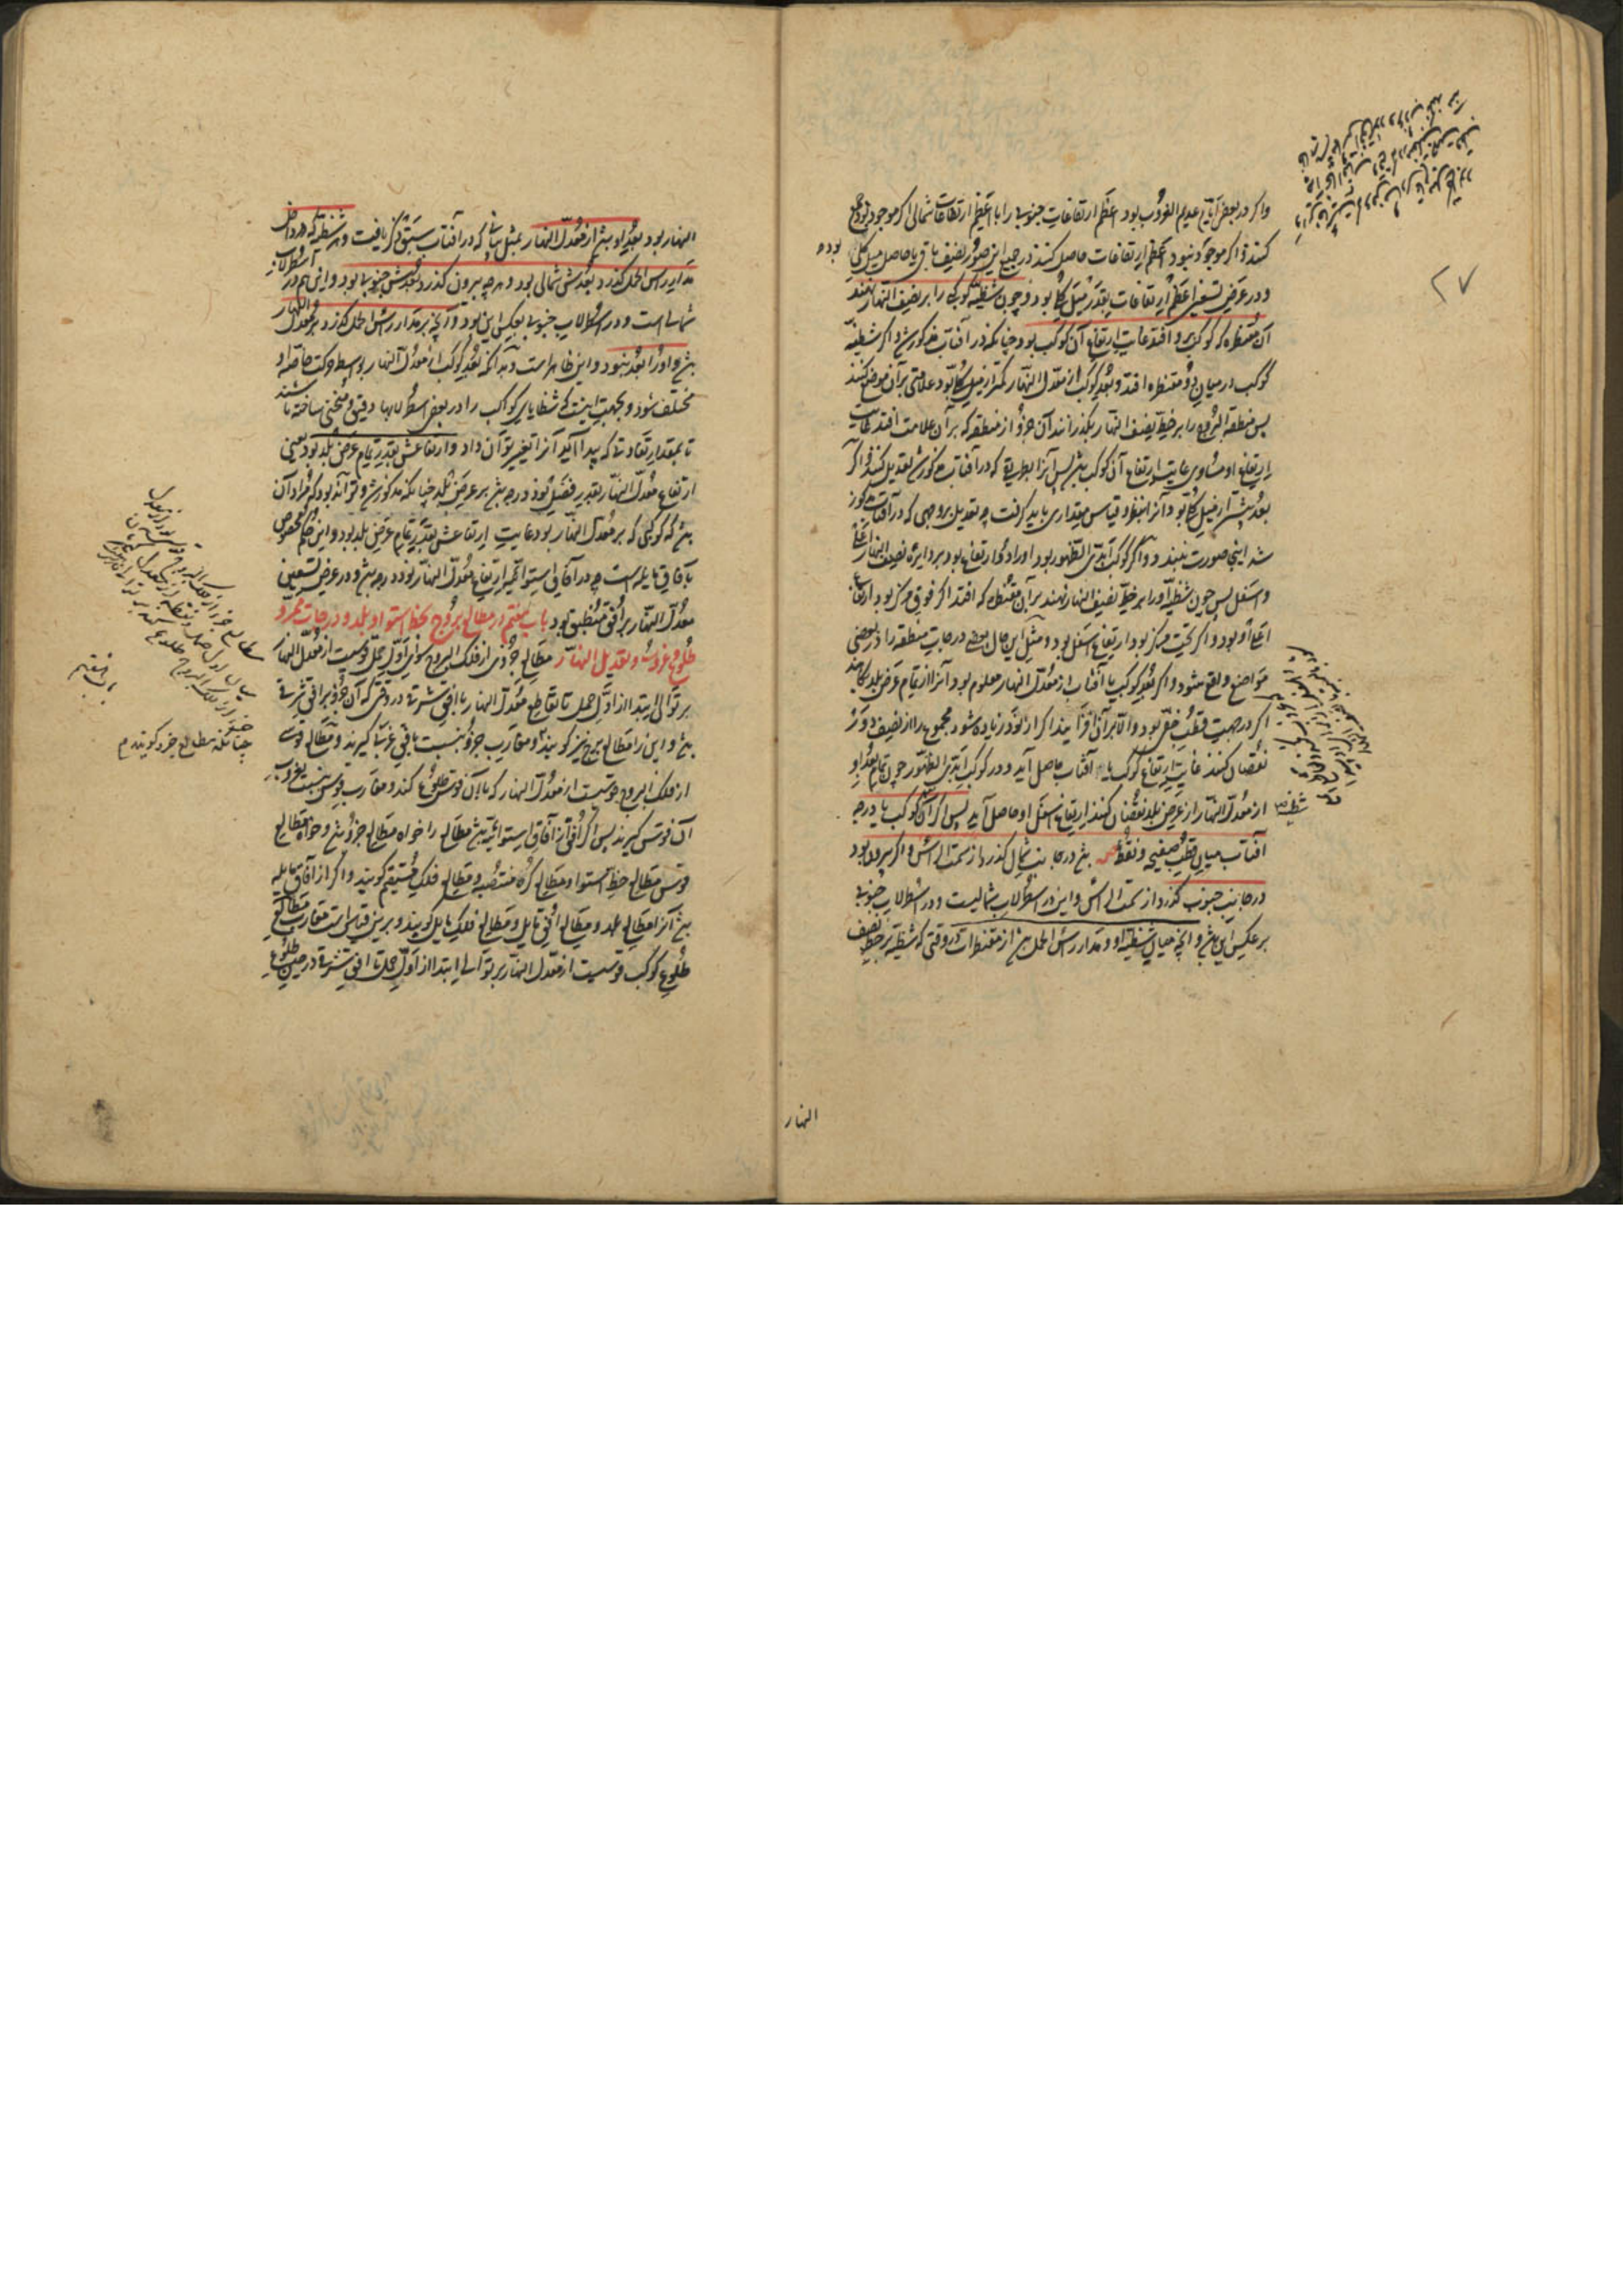 واکر در بعض ایام عدیم الغروب بود اعظم ارتفاعات جنوبی را با اعظم ارتفاعات شمالی اکر موجود بود جمع
کنند و اکر موجود نبود اعظم ارتفاعات حاصل کنند در جمیع این صور نصف باقی یا حاصل میل کلی بود
و در عرض تسعین اعظم ارتفاعات بقدر میل کلی بود و چون شظیه کوکب را بر نصف النهار نهند
آن مقنطره که کوکب برو افتد غایت ارتفاع آن کوکب بود چنانکه در آفتاب مذکور شد و اکر شظیه
کوکب در میان دو مقنطره افتد و بعد کوکب از معدل النهار کمتر از میل کلی بود علامتی بر آن موضع کنند
پس منطقة البروج را بر خط نصف النهار بکذرانند آن جزو از منطقه که بر آن علامت افتد غایت
ارتفاع او مساوی غایت ارتفاع آن کوکب باشد پس آنرا بطریقی که در آفتاب مذکور شد تعدیل کنند و اکر
بعد بیشتر از میل کلی بود آنرا بنظر و قیاس مقداری باید کرفت چه تعدیل بر وجهی که در آفتاب مذکور
شد اینجا صورت نبندد و اکر کوکب ابدی الظهور بود او را دو ارتفاع بود بر دایره نصف النهار اعلی
و اسفل پس چون شظیه او را بر خط نصف النهار نهند بر آن مقنطره که افتد اکر فوق مرکز بود ارتفاع
اعلی او بود و اکر تحت مرکز بود ارتفاع اسفل بود و مثل این حال بعضی درجات منطقه را در بعضی
مواضع واقع شود و اکر بعد کوکب یا آفتاب از معدل النهار معلوم بود آنرا از تمام عرض بلد بکاهند
اکر در جهت قطب خفی بود و الا بر آن افزایند اکر از نود زیاده شود مجموع را از نصف دور
نقصان کنند غایت ارتفاع کوکب یا آفتاب حاصل آید و در کوکب ابدی الظهور چون تمام بعد او
از معدل النهار از عرض بلد نقصان کنند ارتفاع اسفل او حاصل آید پس اکر آن کوکب یا درجه
آفتاب میان قطب صفیحه و نقطه باشد در جانب شمال کذرد از سمت الراس و اکر بیرون بود
در جانب جنوب کذرد از سمت الراس و این در اسطرلاب شمالیست و در اسطرلاب جنوبی
بر عکس این باشد و آنچه میان شظیه او و مدار راس الحمل باشد از مقنطرات در وقتی که شظیه بر خط نصف
النهار
۲۷
النهار بود بعد او باشد از معدل النهار بمثل بیانی که در آفتاب سبق ذکر یافت و هر شظیه که در داخل
مدار راس الحمل کذرد بعدش شمالی بود و هر چه بیرون کذرد بعدش جنوبی بود و این هم در اسطرلاب
شمالی است و در اسطرلاب جنوبی بعکس این بود و آنچه بر مدار راس الحمل کذرد بر معدل النهار
باشد و او را بعد نبود و این ظاهر است و بدانکه بعد کوکب از معدل النهار بواسطه حرکت خاصه او
مختلف شود و بجهت اینست که شظایای کواکب را در بعض اسطرلابها دقیق و منحنی ساخته باشند
تا بمقدار تفاوت که پیدا آید آنرا تغییر توان داد و ارتفاعش بقدر تمام عرض بلد بود یعنی
ارتفاع معدل النهار بقدر فضل نود درجه باشد بر عرض بلد چنانکه مذکور شد و تواند بود که مراد آن
باشد که کوکبی که بر معدل النهار بود غایت ارتفاعش بقدر تمام عرض بلد بود و این حکم مخصوص
بآفاق مایله است چه در آفاق استوائیه ارتفاع معدل النهار نود درجه باشد و در عرض تسعین
معدل النهار بر افق منطبق بود باب هفتم در مطالع بروج بخط استوا و بلد و درجات ممر و
طلوع و غروب و تعدیل النهار مطالع جزوی از فلک البروج سوای اول حمل قوسیست از معدل النهار
بر توالی ابتدا از اول حمل تا تقاطع معدل النهار با افق مشرق در وقتی که آن جزو بر افق شرقی
باشد و این را مطالع برج نیز کویند و مغارب جزو بنسبت با افق غربی کیرند و مطالع قوسی
از فلک البروج قوسیست از معدل النهار که با آن قوس طلوع کند و مغارب قوس بنسبت بغروب
آن قوس کیرند پس اکر افق از آفاق استوائیه باشد مطالع را خواه مطالع جزو باشد و خواه مطالع
قوس مطالع خط استوا و مطالع کره منتصبه و مطالع فلک مستقیم کویند و اکر از آفاق مایله
باشد آنرا مطالع بلد و مطالع افق مایل و مطالع فلک مایل کویند و برین قیاس است مغارب مطالع
طلوع کوکب قوسیست از معدل النهار بر توالی ابتدا از اول حمل تا افق مشرق در حین طلوع
باب هفتم
چنانکه مطالع جزو کویند